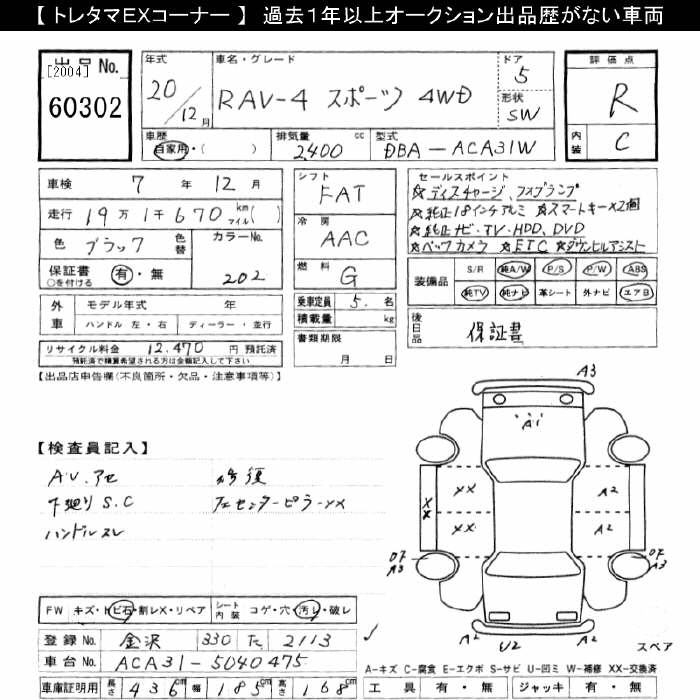 【 トレタマEXコーナー 】 過去1年以上オークション出品歴がない車両
出品No.
[2004]
60302
年式
20/12月
車名・グレード
RAV-4 スポーツ 4WD
ドア
5
形状
SW
評価点
R
内装
C
車歴
自家用・( )
排気量 cc
2400
型式
DBA-ACA31W
車検 7年12月
走行 19万1千670km マイル( )
色 ブラック 色替
カラーNo. 202
保証書 有・無
○を付ける
シフト
FAT
冷房
AAC
燃料
G
乗車定員 5.名
積載量 kg
書類期限
月 日
セールスポイント
☆ディスチャージ、フォグランプ
☆純正18インチアルミ ☆スマートキー×2個
☆純正ナビ・TV・HDD、DVD
☆バックカメラ ☆ETC ☆ダウンヒルアシスト
装備品 S/R 純A/W P/S P/W ABS
純TV 純ナビ 革シート 外ナビ エアB
後日品 保証書
外車 モデル年式 年
ハンドル 左・右 ディーラー・並行
リサイクル料金 12,470 円 預託済
預託済で精算希望される方は金額記入して下さい
【出品店申告欄(不良箇所・欠品・注意事項等)】
【検査員記入】
修復
下廻りS.C
ハンドルスレ
A3
A1
XX
XX
XX
A2
A2
A3
A3
A2
U2
A2
スペア
FW キズ・トビ石・割レX・リペア
シート内装 コゲ・穴・汚レ・破レ
登録No. 金沢 330 た 2113
車台No. ACA31-5040475
車庫証明用 長さ 436cm 幅 185cm 高さ 168cm
A-キズ C-腐食 E-エクボ S-サビ U-凹ミ W-補修 XX-交換済
工具 有・無 ジャッキ 有・無